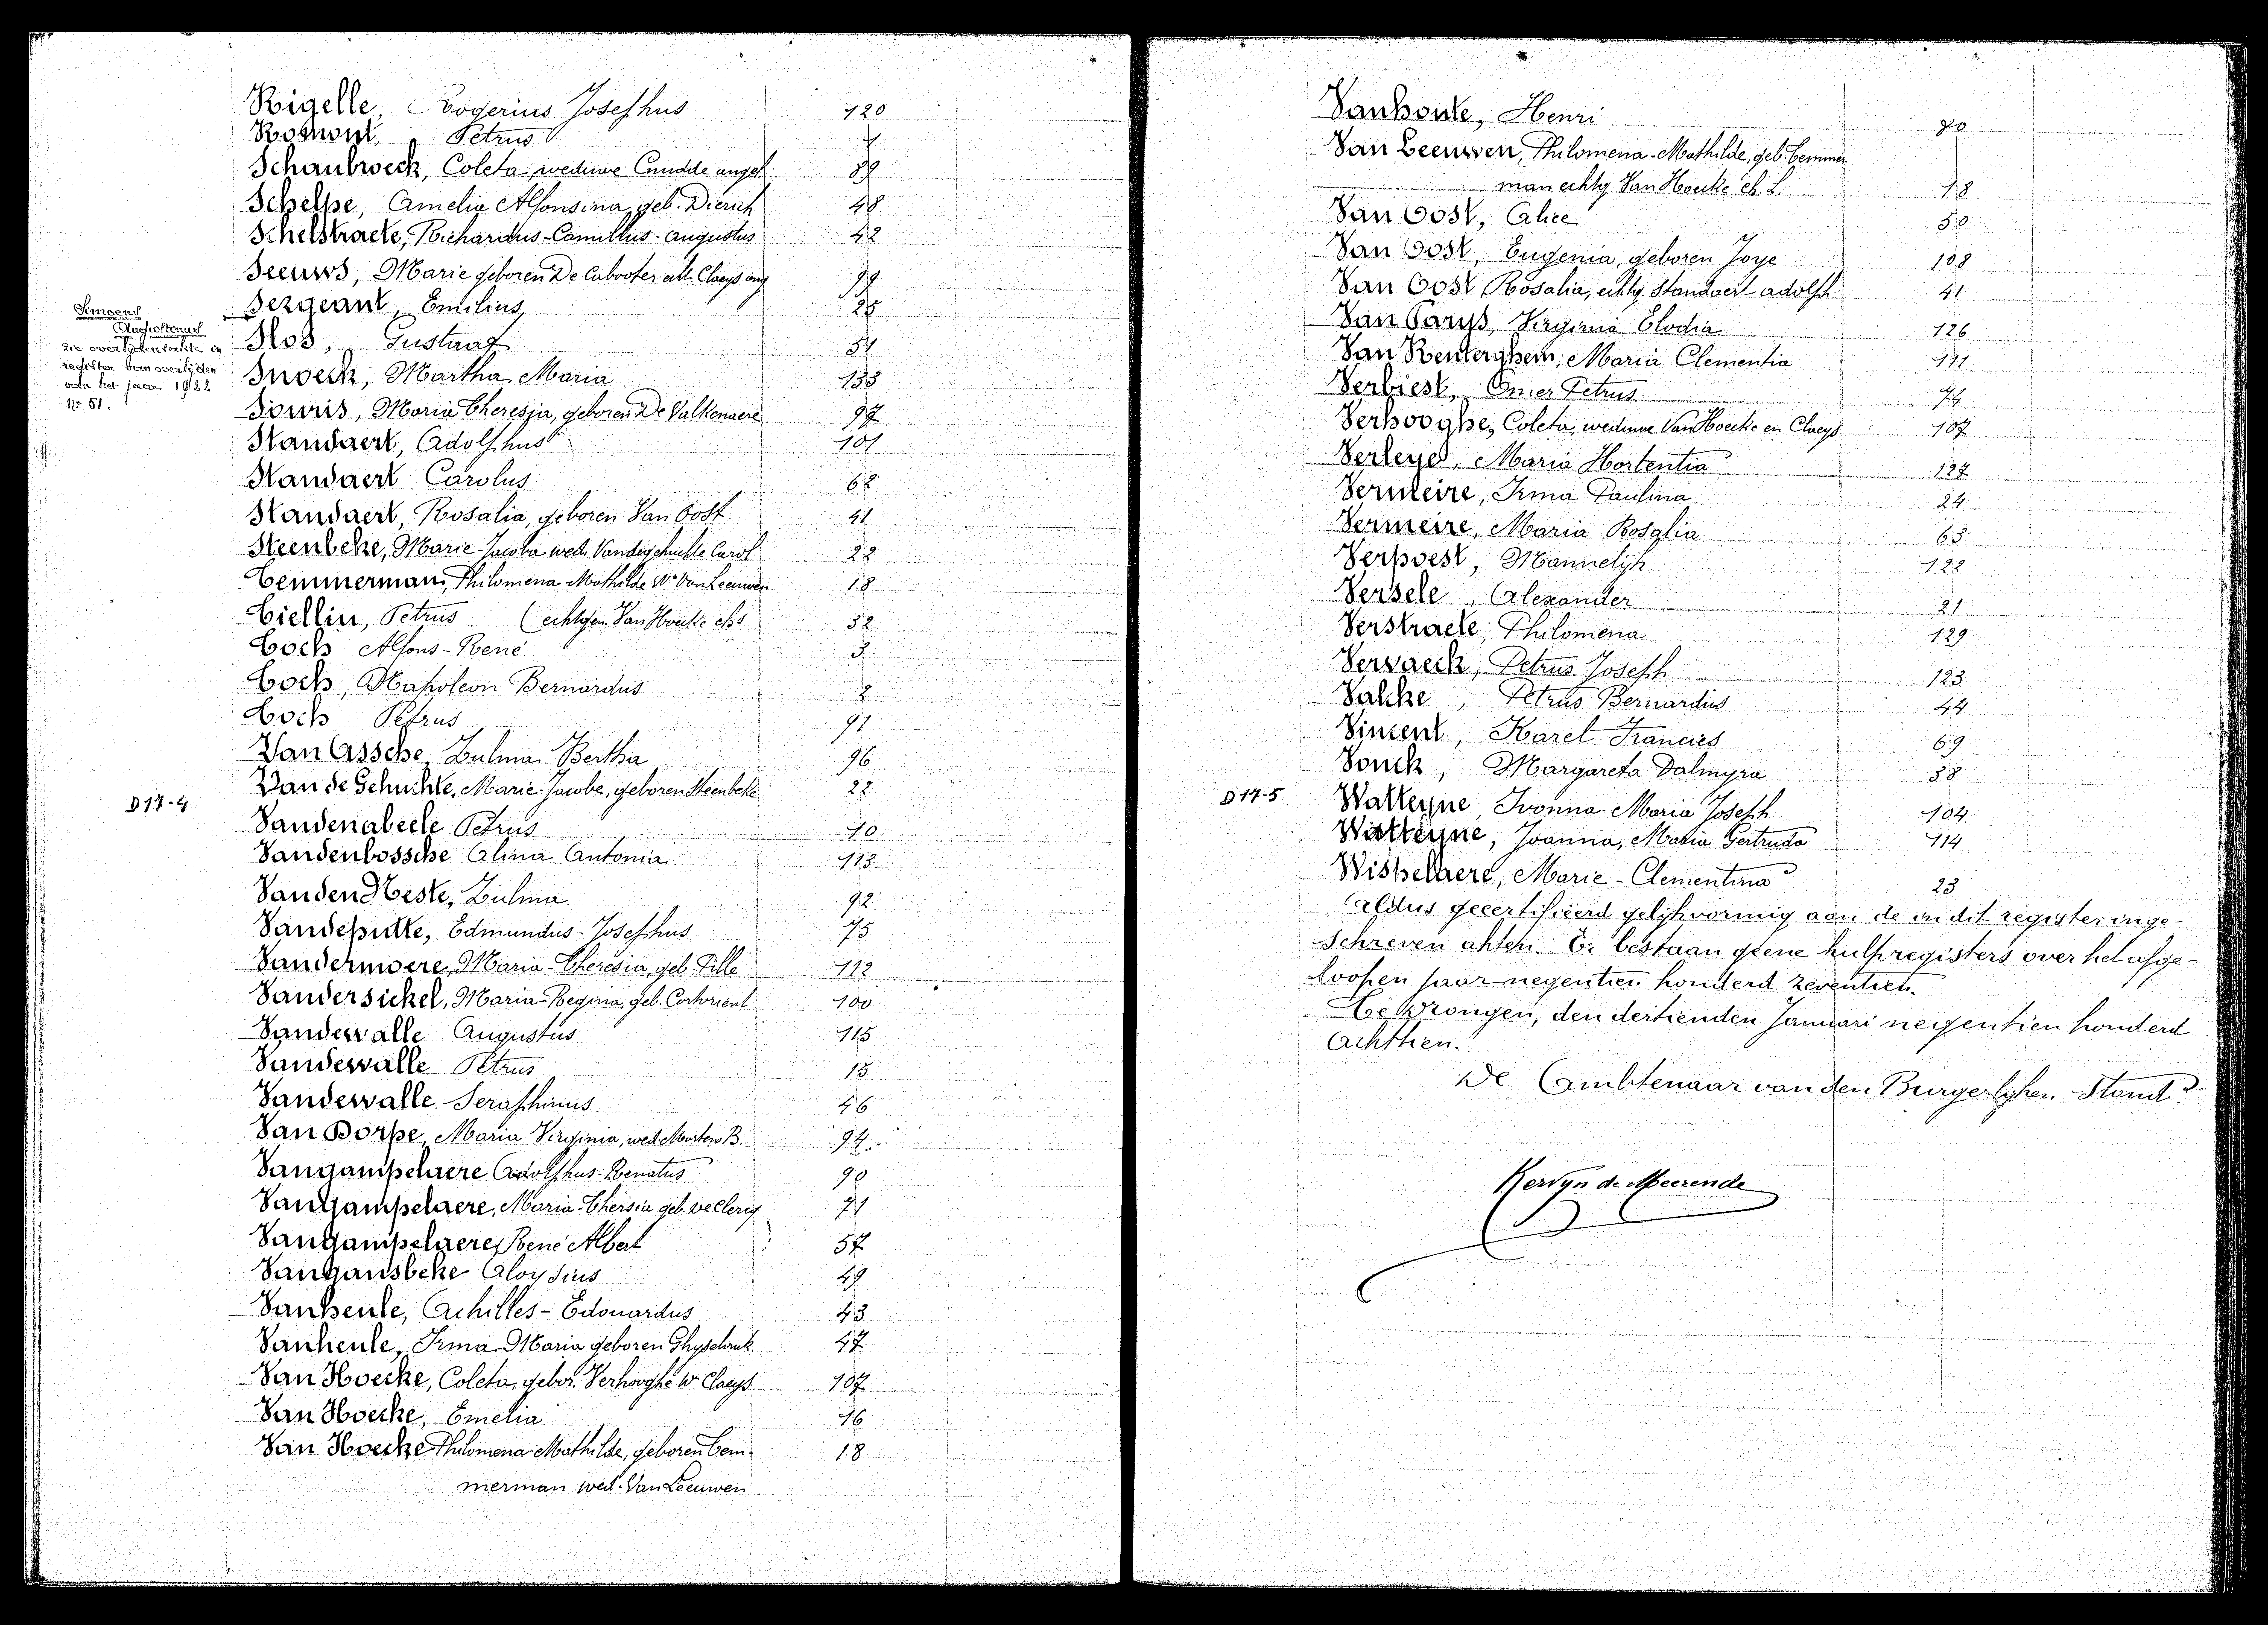 Rigelle, Rogerius Josephus 120
Romont, Petrus 4
Schaubroeck, Coleta, weduwe Cnudde angel. 89
Schelpe, Amelia Alfonsina, geb. Dierick 48
Schelstraete, Richardus-Camillus-Augustus 42
Seeuws, Marie geboren De Cubooter echt. Claeys aug 99
Sergeant, Emilius, 25
Simoens
Augustinus
zie overlijdensakte in
registen van overlijden
van het jaar 1922
No 51.
Slos, Gustaaf 51
Snoeck, Martha, Maria 133
Souris, Maria Theresia, geboren De Valkenaere 97
Standaert, Adolphus 101
Standaert Carolus 62
Standaert, Rosalia, geboren Van Oost 41
Steenbeke, Marie-Jacoba wed. Vandegehuchte Carol 22
Temmerman, Philomena Mathilde We Van Leeuwen 18
Tiellin, Petrus (echtgen. Van Hoecke chs 32
Toch Alfons-René 3
Toch, Napoleon Bernardus 2
Toch Petrus 91
Van Assche, Zulma Bertha 96
Van de Gehuchte, Marie-Jacobe, geboren Steenbeke 22
D17-4
Vandenabeele Petrus 10
Vandenbossche Alina Antonia 113
Vanden Neste, Zulma 92
Vandeputte, Edmundus-Josephus 75
Vandermoere, Maria-Theresia, geb. Pille 112
Vandersickel, Maria-Regina, geb. 100
Vandewalle Augustus 115
Vandewalle Petrus 15
Vandewalle Seraphinus 46
Van Dorpe, Maria Virginia, wed. Martens B. 94
Vangampelaere Adolphus-Renatus 90
Vangampelaere, Maria-Thersia geb. De Clercq 71
Vangampelaere, René Albert 57
Vangansbeke Aloysius 49
Vanheule, Achilles-Edouardus 43
Vanheule, Irma Maria geboren Ghyselinck 47
Van Hoecke, Coleta, gebor. Verhooghe We Claeys 107
Van Hoecke, Emelia 16
Van Hoecke Philomena-Mathilde, geboren Tem- 18
merman wed. Van Leeuwen
Vanhoute, Henri 70
Van Leeuwen, Philomena-Mathilde, geb. Temmer
man echtg. Van Hoecke Ch. L. 18
Van Oost, Alice 50
Van Oost, Eugenia, geboren Joye 108
Van Oost Rosalia, echtg. Standaert-Adolph. 41
Van Parys, Virginia Elodia 126
Van Renterghem, Maria Clementia 111
Verbiest, Omer Petrus 74
Verhooghe, Coleta, weduwe Van Hoecke en Claeys 107
Verleye, Maria Hortentia 127
Vermeire, Irma Paulina 24
Vermeire, Maria Rosalia 63
Verpoest, Mannelijk 122
Versele, Alexander 21
Verstraete, Philomena 129
Vervaeck, Petrus Joseph 123
Valcke, Petrus Bernardus 44
Vincent, Karel Francies 69
Vonck, Margareta Dalmyra 38
D17-5
Watteyne, Ivonna-Maria Joseph 104
Watteyne, Joanna, Maria Gertruda 114
Wispelaere, Marie-Clementina 23
Aldus gecertifiëerd gelijkvormig aan de in dit register inge-
schreven akten. Er bestaan geene hulpregisters over het afge-
loopen jaar negentien honderd zeventien.
Te Drongen, den dertienden Januari negentien honderd
Achttien.
De Ambtenaar van den Burgerlyken Stand.
Kervyn de Meerende